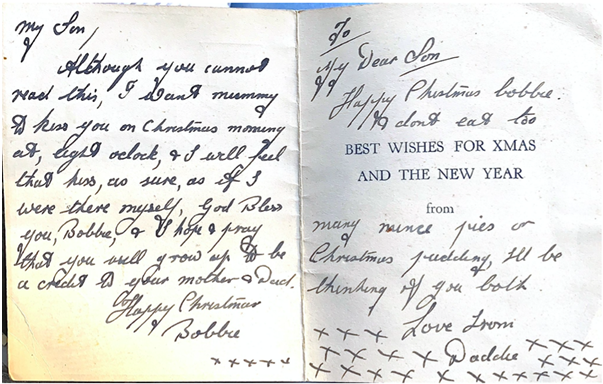 My Son,
Although you cannot
read this, I want mummy
to kiss you on Christmas morning
at, eight oclock, & I will feel
that kiss, as sure, as if I
were there myself, God Bless
you, Bobbie, & I hope & pray
that you will grow up to be
a credit to your mother & Dad.
Happy Christmas
Bobbie
x x x x x
To
My Dear Son
Happy Christmas bobbie.
& dont eat too
BEST WISHES FOR XMAS
AND THE NEW YEAR
from
many mince pies or
Christmas pudding, I'll be
thinking of you both.
Love From
x x x x x x
x x x x x Daddie x x x x
x x x x x x x x x x x x